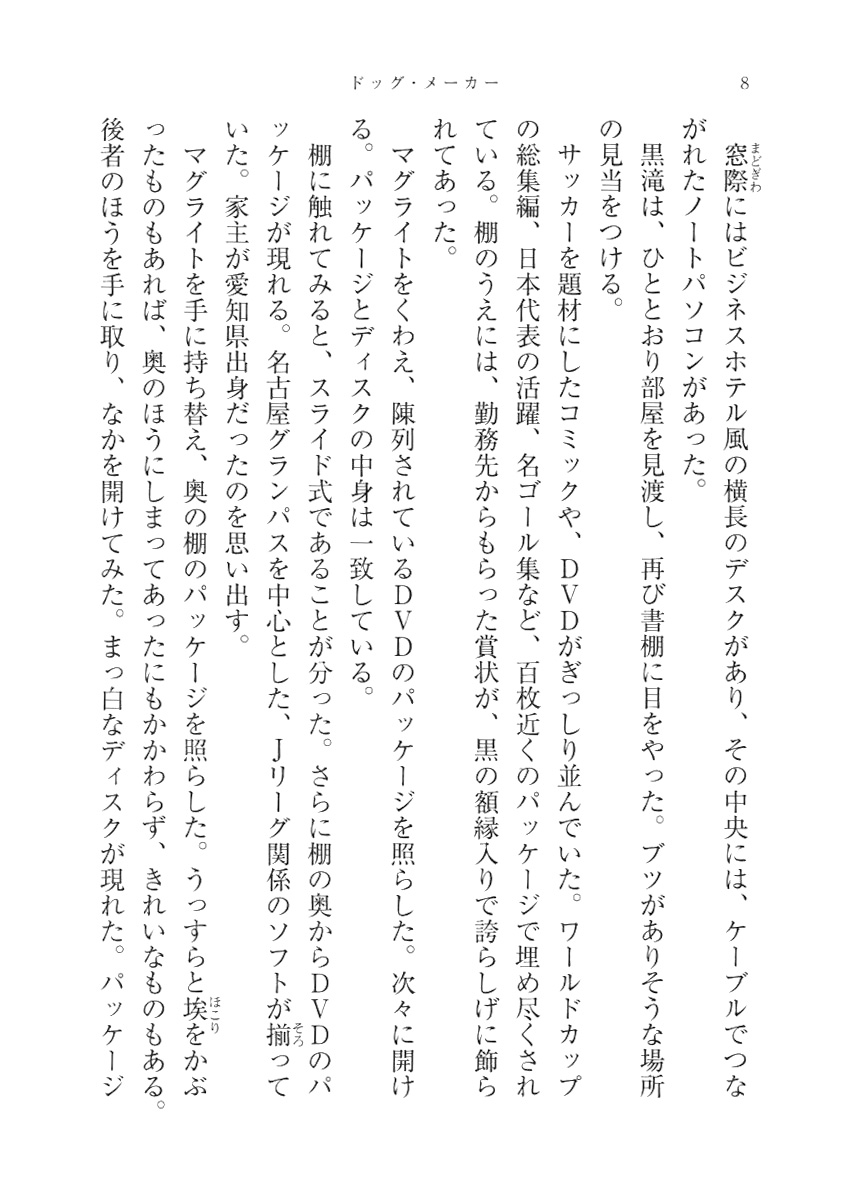 ドッグ・メーカー
8
窓際にはビジネスホテル風の横長のデスクがあり、その中央には、ケーブルでつな
まどぎわ
がれたノートパソコンがあった。
黒滝は、ひととおり部屋を見渡し、再び書棚に目をやった。ブツがありそうな場所
の見当をつける。
サッカーを題材にしたコミックや、DVDがぎっしり並んでいた。ワールドカップ
の総集編、日本代表の活躍、名ゴール集など、百枚近くのパッケージで埋め尽くされ
ている。棚のうえには、勤務先からもらった賞状が、黒の額縁入りで誇らしげに飾ら
れてあった。
マグライトをくわえ、陳列されているDVDのパッケージを照らした。次々に開け
る。パッケージとディスクの中身は一致している。
棚に触れてみると、スライド式であることが分った。さらに棚の奥からDVDのパ
ッケージが現れる。名古屋グランパスを中心とした、Jリーグ関係のソフトが揃って
そろ
いた。家主が愛知県出身だったのを思い出す。
マグライトを手に持ち替え、奥の棚のパッケージを照らした。うっすらと埃をかぶ
ほこり
ったものもあれば、奥のほうにしまってあったにもかかわらず、きれいなものもある。
後者のほうを手に取り、なかを開けてみた。まっ白なディスクが現れた。パッケージ